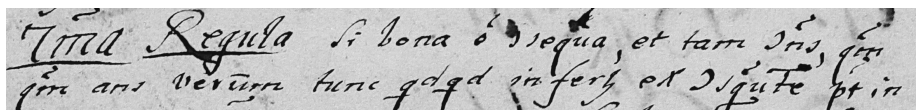 7ma Regula Si bona ê Ɔsequa, et tam Ɔns, qm
qm ans verum tunc qdqd infertz ex Ɔsqute pt in